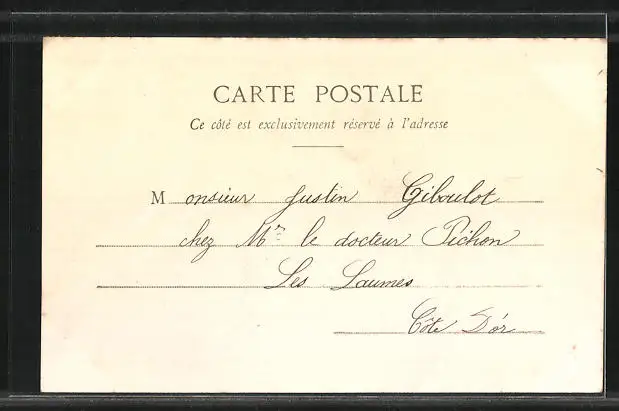 CARTE POSTALE
Ce côté est exclusivement réservé à l'adresse
Monsieur Justin Giboulot
chez Mr le docteur Pichon
Les Laumes
Côte D'or